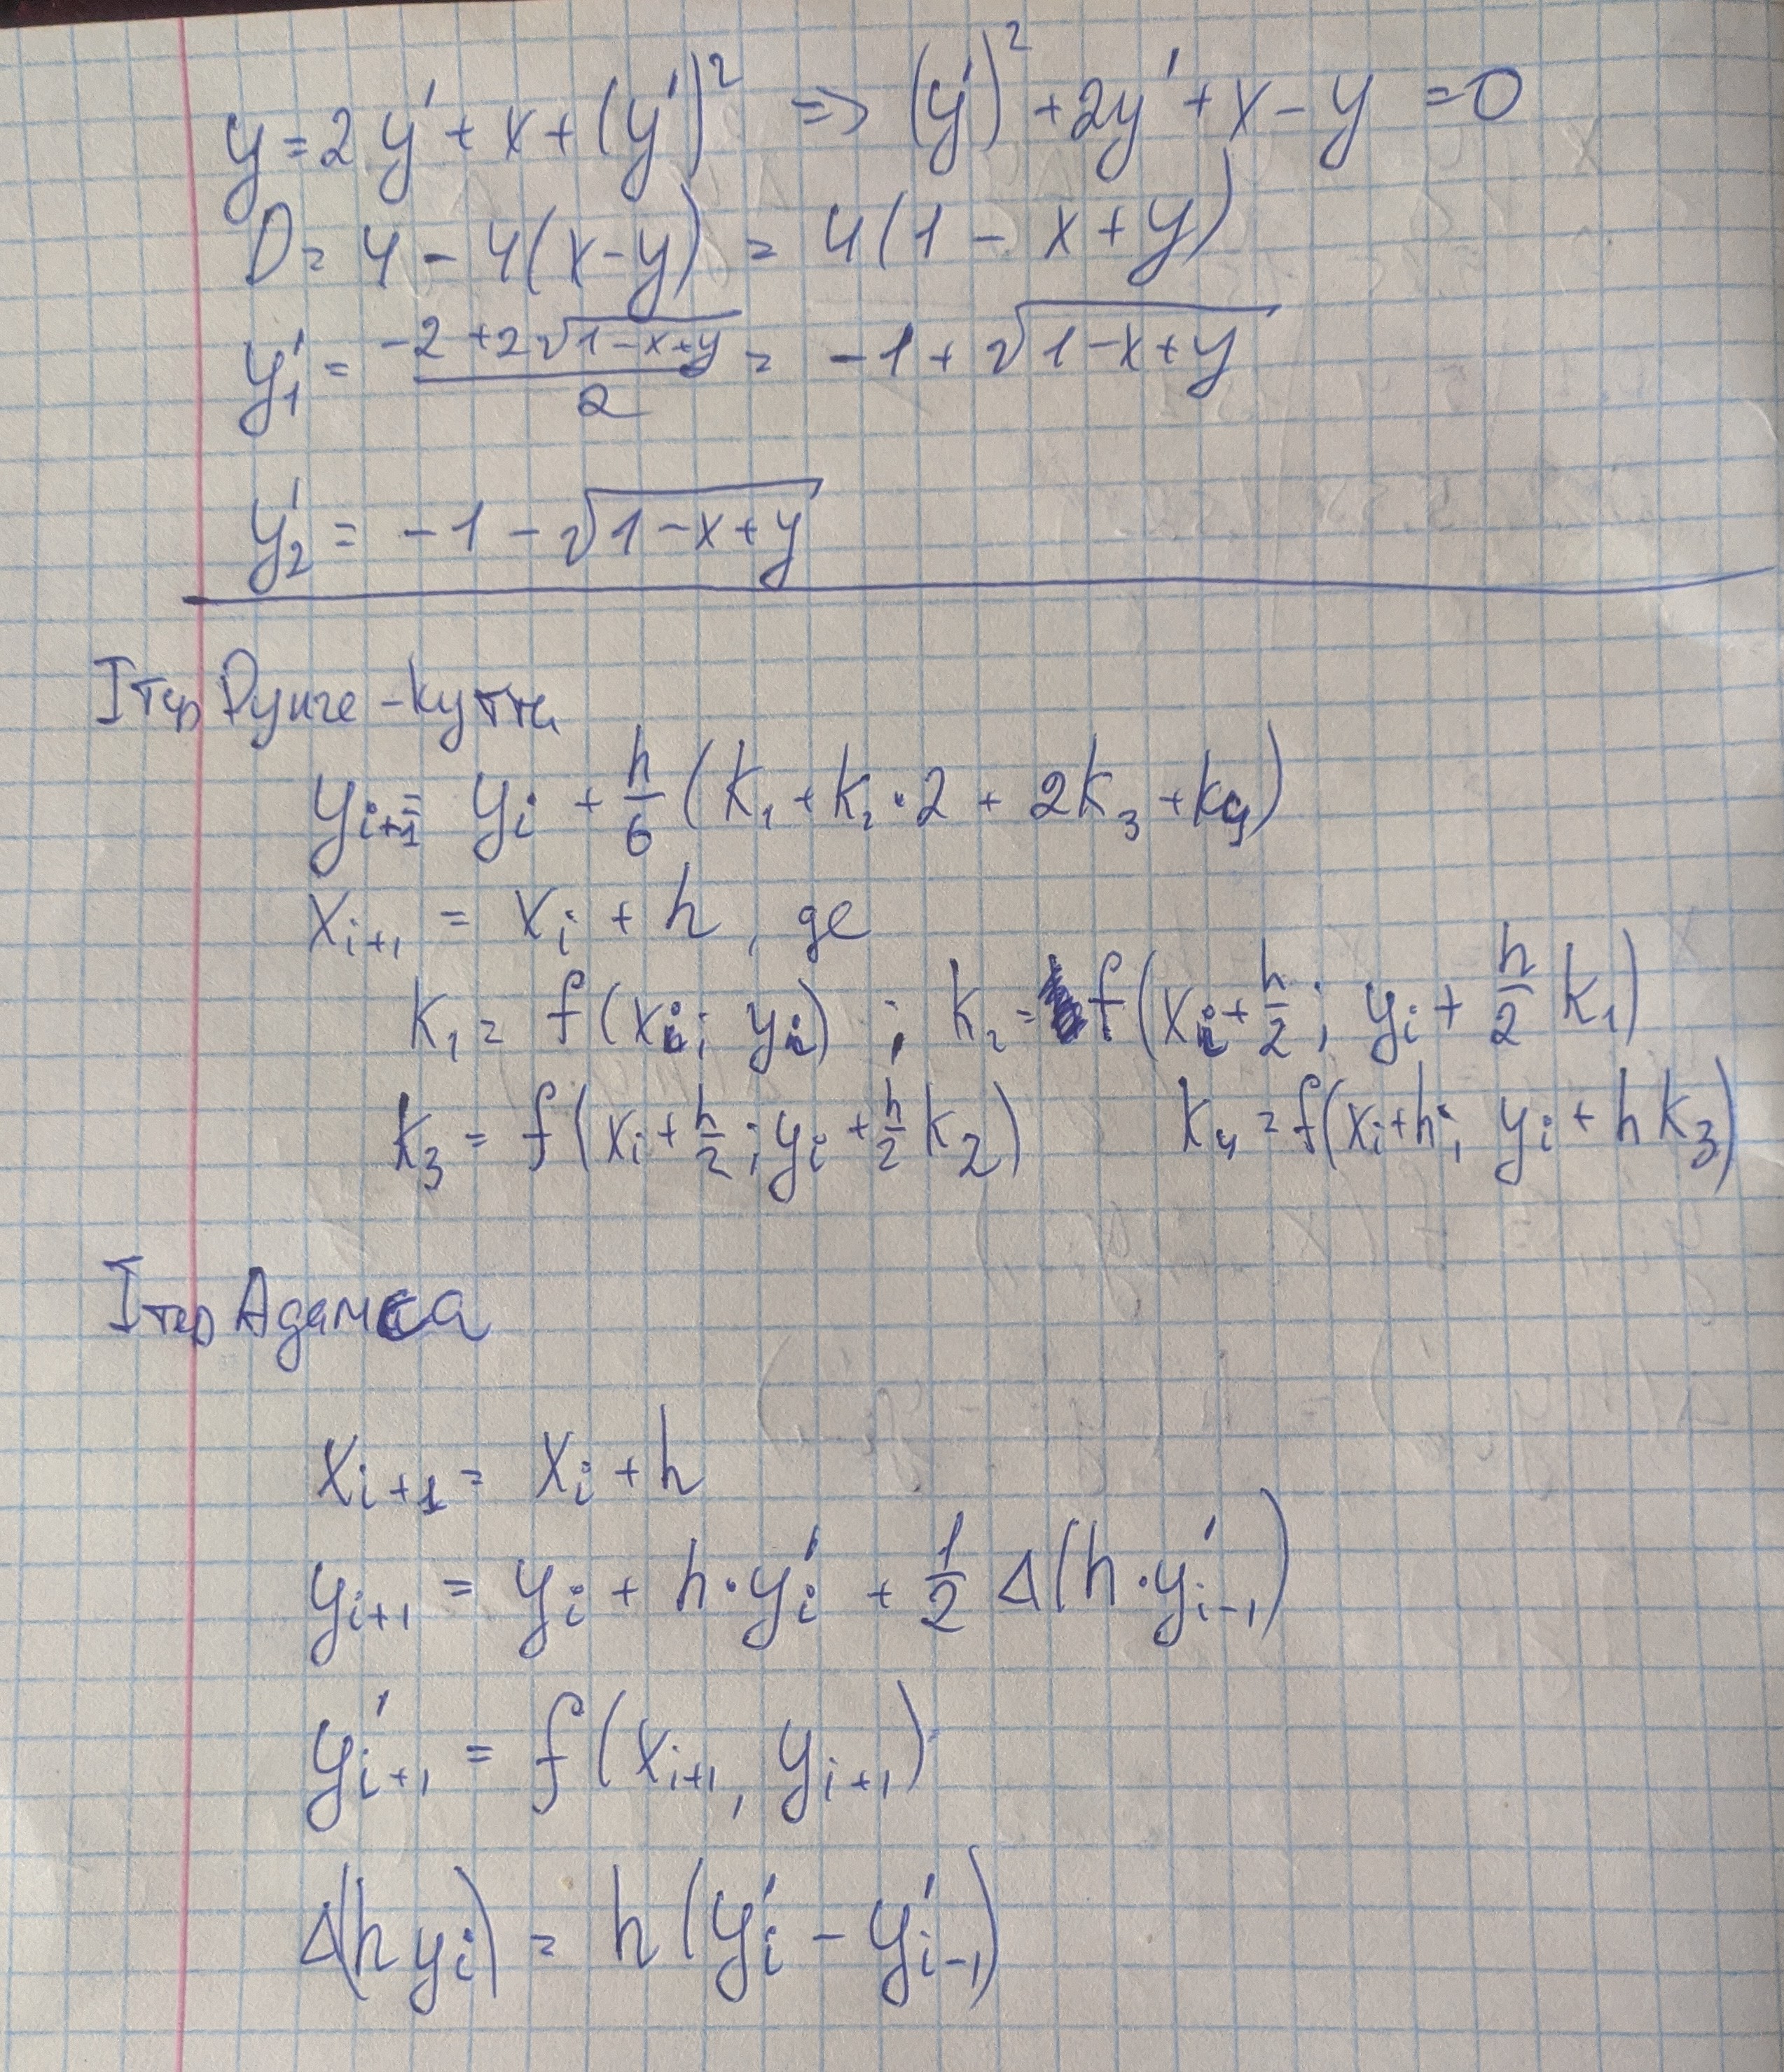 y = 2y' + x + (y')² => (y')² + 2y' + x - y = 0
D = 4 - 4(x-y) = 4(1 - x + y)
y₁' = (-2 + 2√(1-x+y))/2 = -1 + √(1-x+y)
y₂' = -1 - √(1-x+y)
Ітер Рунге-Кутта
yᵢ₊₁ = yᵢ + h/6 (k₁ + k₂·2 + 2k₃ + k₄)
xᵢ₊₁ = xᵢ + h, де
k₁ = f(xᵢ; yᵢ) ; k₂ = f(xᵢ + h/2; yᵢ + h/2 k₁)
k₃ = f(xᵢ + h/2; yᵢ + h/2 k₂) k₄ = f(xᵢ + h; yᵢ + h k₃)
Ітер Адамса
xᵢ₊₁ = xᵢ + h
yᵢ₊₁ = yᵢ + h·yᵢ' + 1/2 Δ(h·y'ᵢ₋₁)
y'ᵢ₊₁ = f(xᵢ₊₁, yᵢ₊₁)
Δ(h yᵢ) = h(yᵢ' - y'ᵢ₋₁)